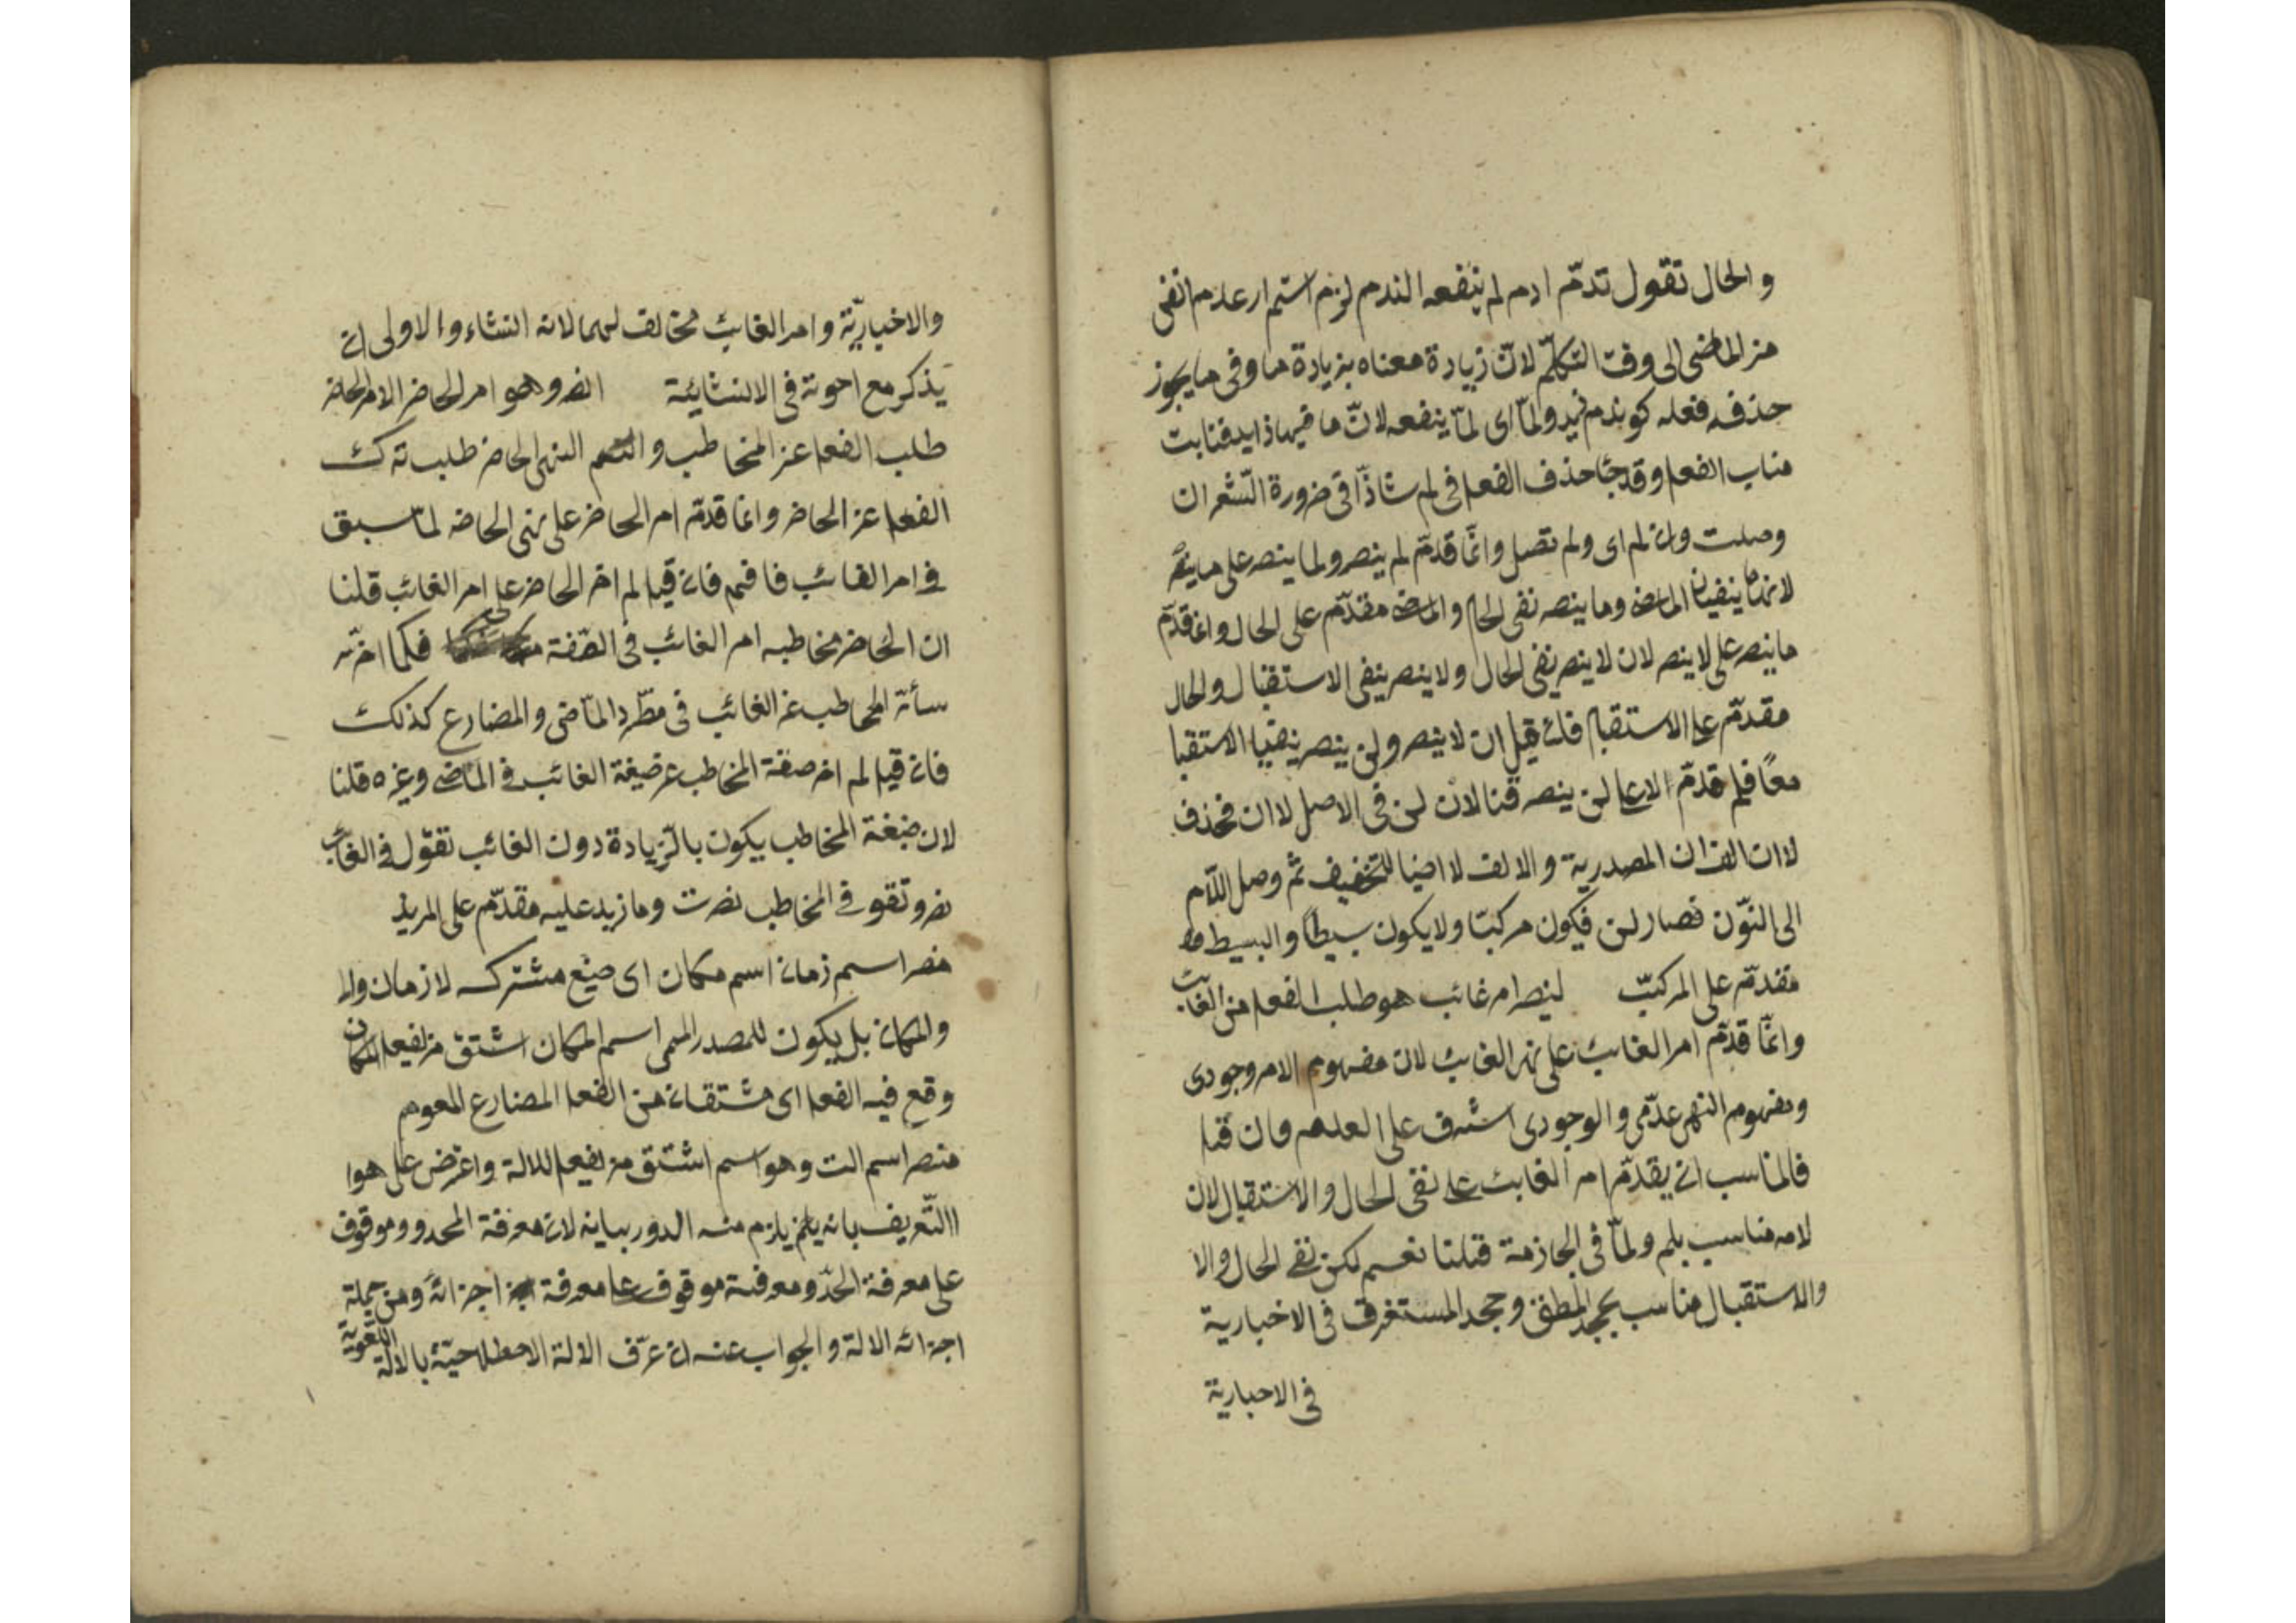 والحال تقول تدمّ ادم لم ينفعه الندم لزم استمرار عدم انفى
من الماضى الى وقت التكلّم لانّ زيادة معناه بزيادة ما وفى ما يجوز
حذف فعله كو ندم زيد ولمّا اى لمّا ينفعه لانّ ما فيها زايد فنابت
مناب الفعل وقد جا حذف الفعل فى لم شاذّا فى ضرورة الشعر ان
وصلت وان لم اى ولم تصل وانّما قدّم لم ينصر ولما ينصر على ما ينصر
لانهما ينفيان الماضى وما ينصر نفى الحال والماضى مقدّم على الحال وانما قدّم
ما ينصر على لا ينصر لان لا ينصر نفى الحال ولا ينصر ينفى الاستقبال والحال
مقدّم على الاستقبال فان قيل ان لا ينصر ولن ينصر ينفيا الاستقبا
معًا فلم قدّم الا على لن ينصر قنا لان لن فى الاصل لا ان فحذف
لا ان الف ان المصدرية والالف لا ايضا للتخفيف ثمّ وصل اللّام
الى النّون فصار لن فيكون مركبّا ولا يكون بسيطًا والبسيط
مقدّم على المركبّ لينصر امر غائب هو طلب الفعل من الغائب
وانّما قدّم امر الغائب على نهى الغايب لان مفهوم الامر وجودى
ومفهوم النهى عدمّى والوجودى اشرف على العدم فان قيل
فالمناسب ان يقدّم امر الغايب على نفى الحال والاستقبال لان
لامه مناسب بلم ولمّا فى الجازمة قلنا نعم لكن نفى الحال والا
والاستقبال مناسب بجحد المطلق وجحد المستغرق فى الاخبارية
فى الاخبارية
والاخباريّة وامر الغايب مخالف لهما لانه انشاء والاولى ان
يذكر مع اخوته فى الانشائية انصر وهو امر الحاضر الامر الحاضر
طلب الفعل عن المخاطب و النهى الحاضر طلب ترك
الفعل عن الحاضر وانما قدّم امر الحاضر على نهى الحاضر لما سبق
فى امر الغائب فافهم فان قيل لم اخر الحاضر على امر الغائب قلنا
ان الحاضر مخاطبه امر الغائب فى الصّفة فكما اخّر
المخاطب عن الغائب فى مطّرد الماضى والمضارع كذلك
فان قيل لم اخر صغة المخاطب عن صيغة الغائب فى الماضى وغيره قلنا
لان صيغة المخاطب يكون بالزّيادة دون الغائب تقول فى الغائب
نصر وتقو فى المخاطب نصرت وما زيد عليه مقدّم على المزيد
منصر اسم زمان اسم مكان اى صيغ مشترك لا زمان ولا
والمكان بل يكون للمصدر الميمى اسم المكان اشتق من يفعل لمكان
وقع فيه الفعل اى مشتقان من الفعل المضارع المعوم
منصر اسم الت وهو اسم اشتق من يفعل للالة واعترض على هوا
االتّعريف بانه يلزم منه الدور بيانه لان معرفة المحدود موقوف
على معرفة الحدّ ومعرفته موقوف على معرفة اجزائه ومن جملة
اجزائه الالة والجواب عنه ان عرّف الالة الاصطلاحيّة بالالة اللغويّة